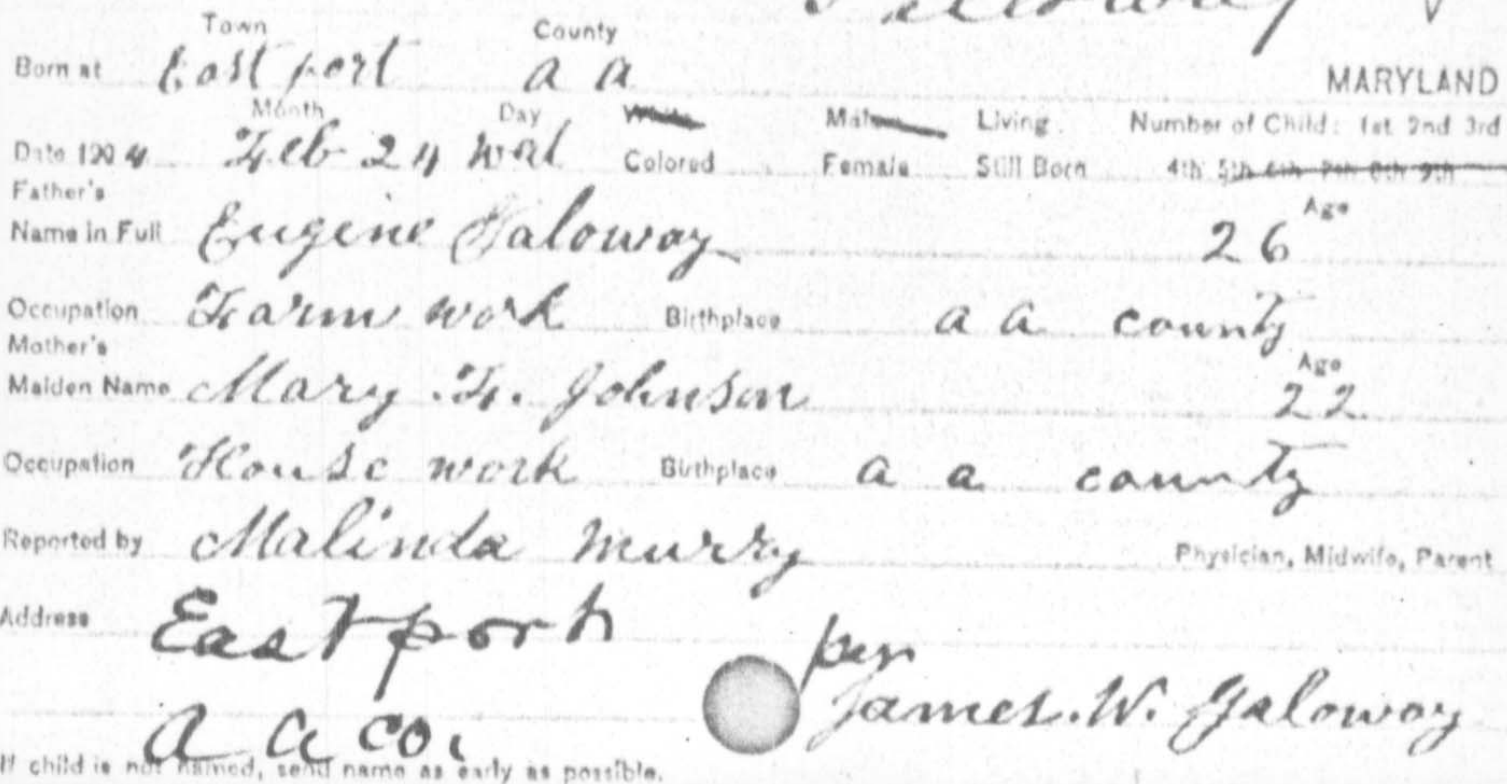 Town County
Born at East port a a MARYLAND
Month Day White Male Living Number of Child: 1st 2nd 3rd
Date 1904 Feb 24 Wed Colored Female Still Born 4th 5th 6th 7th 8th 9th
Father's Age
Name in Full Eugene Galoway 26
Occupation Farm work Birthplace a a county
Mother's Age
Maiden Name Mary. F. Johnson 22
Occupation House work Birthplace a a county
Reported by Malinda Murry Physician, Midwife, Parent
Address East port per
a a co. James. W. Galoway
If child is not named, send name as early as possible.